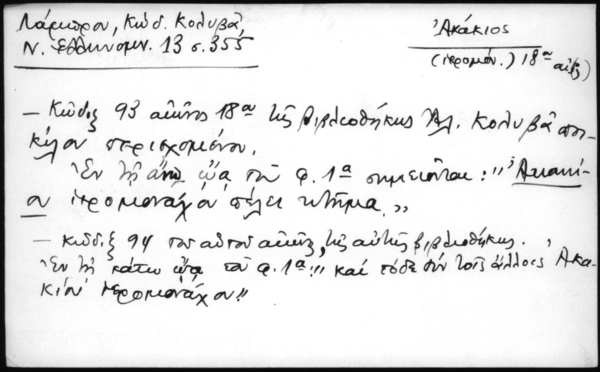 Λάμπρου, Κώδ. Κολυβᾶ
Ν. Ἑλληνομν. 13 σ. 355
Ἀκάκιος
(ἱερομόν.) 18ος αἰών)
— Κῶδιξ 93 αἰῶνος 18ου τῆς βιβλιοθήκης Ἀλ. Κολυβᾶ ποι-
κίλου περιεχομένου.
Ἐν τῇ ἄνω ᾤᾳ τοῦ φ. 1α σημειοῦται: "Ἀκακί-
ου ἱερομονάχου πέλει κτῆμα."
— κῶδιξ 94 τοῦ αὐτοῦ αἰῶνος, τῆς αὐτῆς βιβλιοθήκης.
Ἐν τῇ κάτω ᾤᾳ τοῦ φ. 1α: "καὶ τόδε σὺν τοῖς ἄλλοις Ἀκα-
κίου ἱερομονάχου"